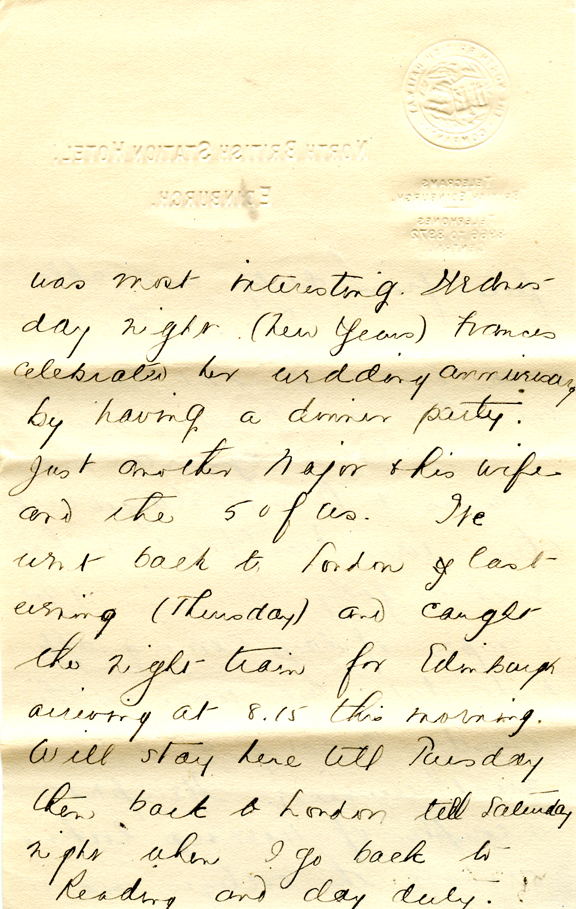 NORTH BRITISH STATION HOTEL.
EDINBURGH.
TELEGRAMS
TELEPHONES
was most interesting. Wednes-
day night (New Years) Frances
celebrated her wedding anniversary
by having a dinner party.
Just another Major & his wife
and the 5 of us. We
went back to London last
evening (Thursday) and caught
the night train for Edinburgh
arriving at 8.15 this morning.
Will stay here till Tuesday
then back to London till Saturday
night when I go back to
Reading and day duty.